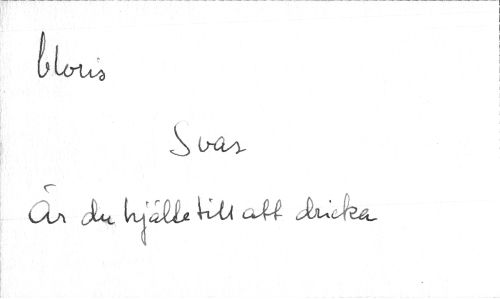 Cloris
Svar
Är du hjälte till att dricka